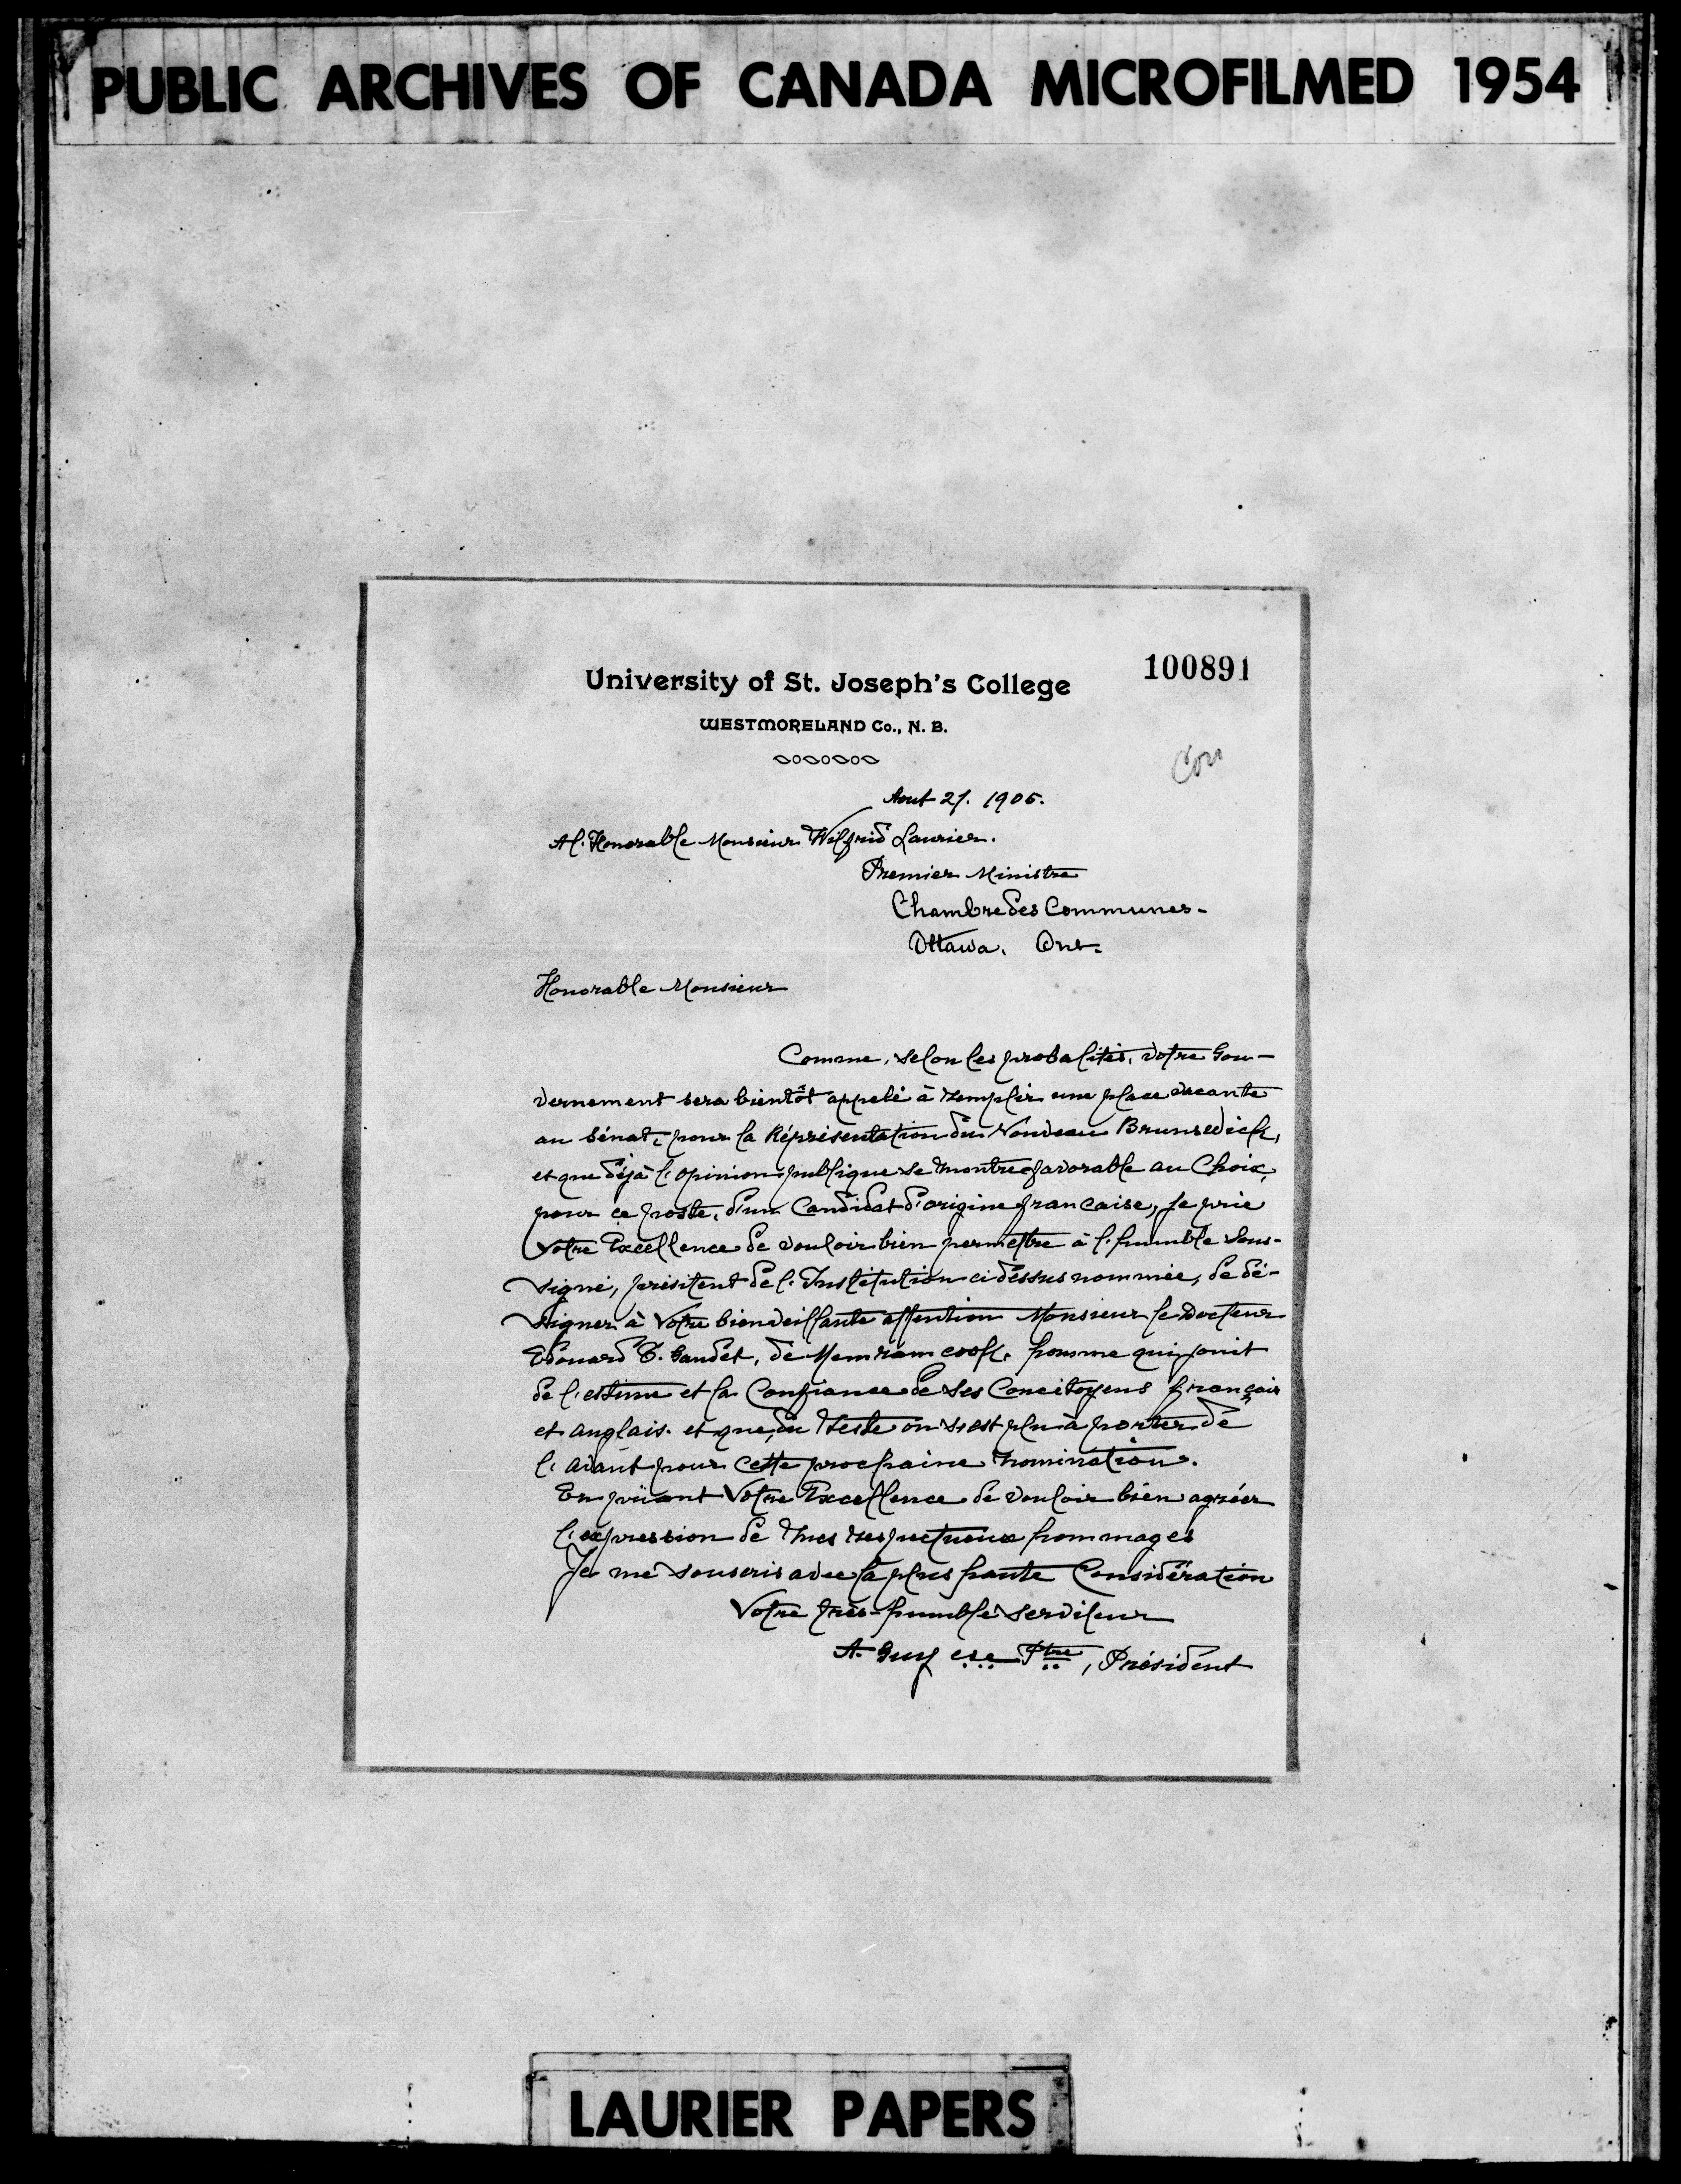 PUBLIC ARCHIVES OF CANADA MICROFILMED 1954
100891
University of St. Joseph's College
WESTMORELAND Co., N. B.
Aout 27. 1906.
A l'Honorable Monsieur Wilfrid Laurier.
Premier Ministre
Chambre des Communes.
Ottawa. Ont.
Honorable Monsieur
Comme, selon les probalités, votre Gou-
vernement sera bientôt appelé à remplir une place vacante
au Sénat, pour la Réprésentation du Nouveau Brunswick,
et que déjà l'opinion publique se montre favorable au Choix,
pour ce poste, d'un Candidat d'origine française, je prie
Votre Excellence de vouloir bien permettre à l'humble sous-
signé, présitent de l'Institution ci dessus nommée, de dé-
signer à Votre bienveillante attention Monsieur le Docteur
Edouard T. Gaudet, de Memramcook, homme qui jouit
de l'estime et la Confiance de ses Concitoyens français
et anglais. et que, du reste on s'est plu à porter de
l'avant pour cette prochaine nomination.
En priant Votre Excellence de vouloir bien agréer
l'expression de mes respectueux hommages
Je me souscris avec la plus haute Considération
Votre très-humble serviteur
A. Guy c.s.c. Ptre, Président
LAURIER PAPERS